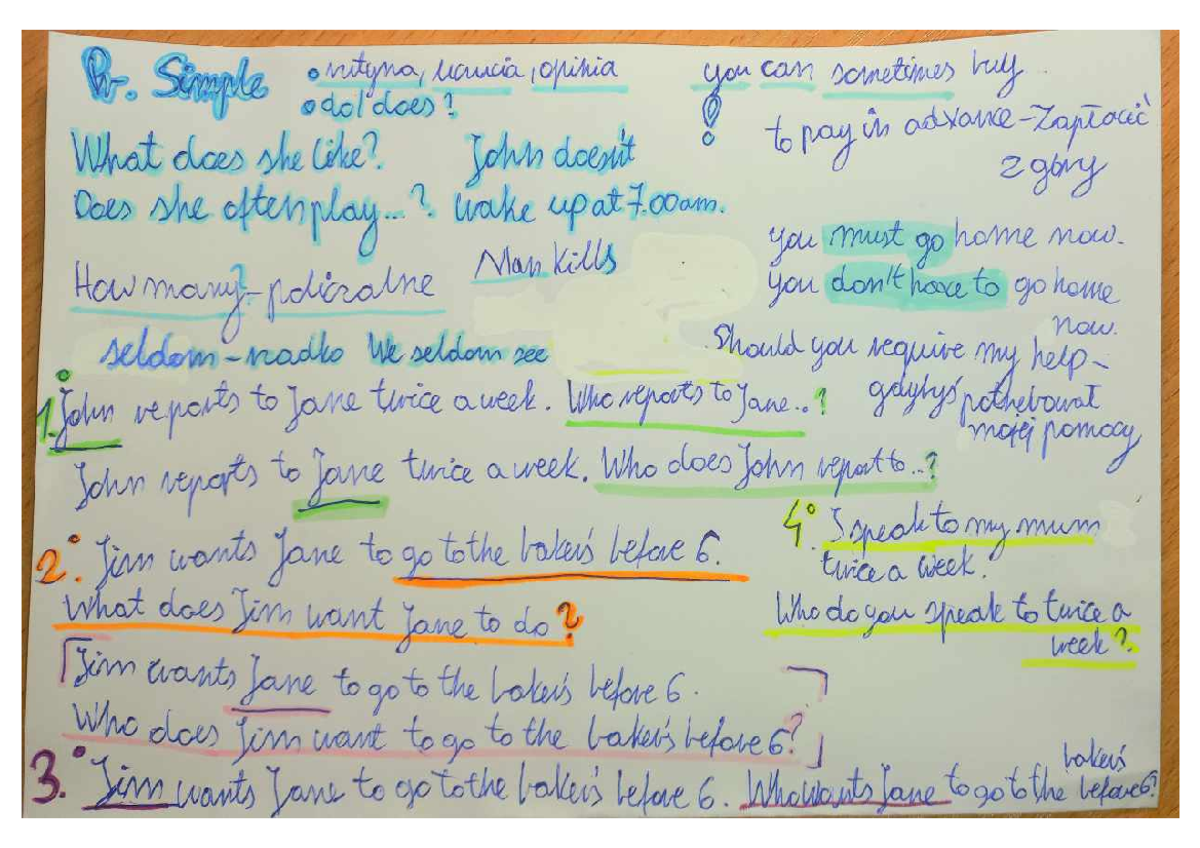 Pr. Simple
• rutyna, uczucia, opinia
• do/does?
What does she like?
Does she often play...?
John doesn't
wake up at 7.00am.
How many? - policzalne
Man kills
seldom - rzadko We seldom see
you can sometimes buy
!
to pay in advance - Zapłacić
z góry
you must go home now.
you don't have to go home
now.
Should you require my help -
gdybyś potrzebował
mojej pomocy
1. John reports to Jane twice a week. Who reports to Jane..?
John reports to Jane twice a week. Who does John report to...?
2. Jim wants Jane to go to the baker's before 6.
What does Jim want Jane to do?
[Jim wants Jane to go to the baker's before 6.
Who does Jim want to go to the baker's before 6?]
3. Jim wants Jane to go to the baker's before 6. Who wants Jane to go to the baker's before 6?
4. I speak to my mum
twice a week.
Who do you speak to twice a
week?